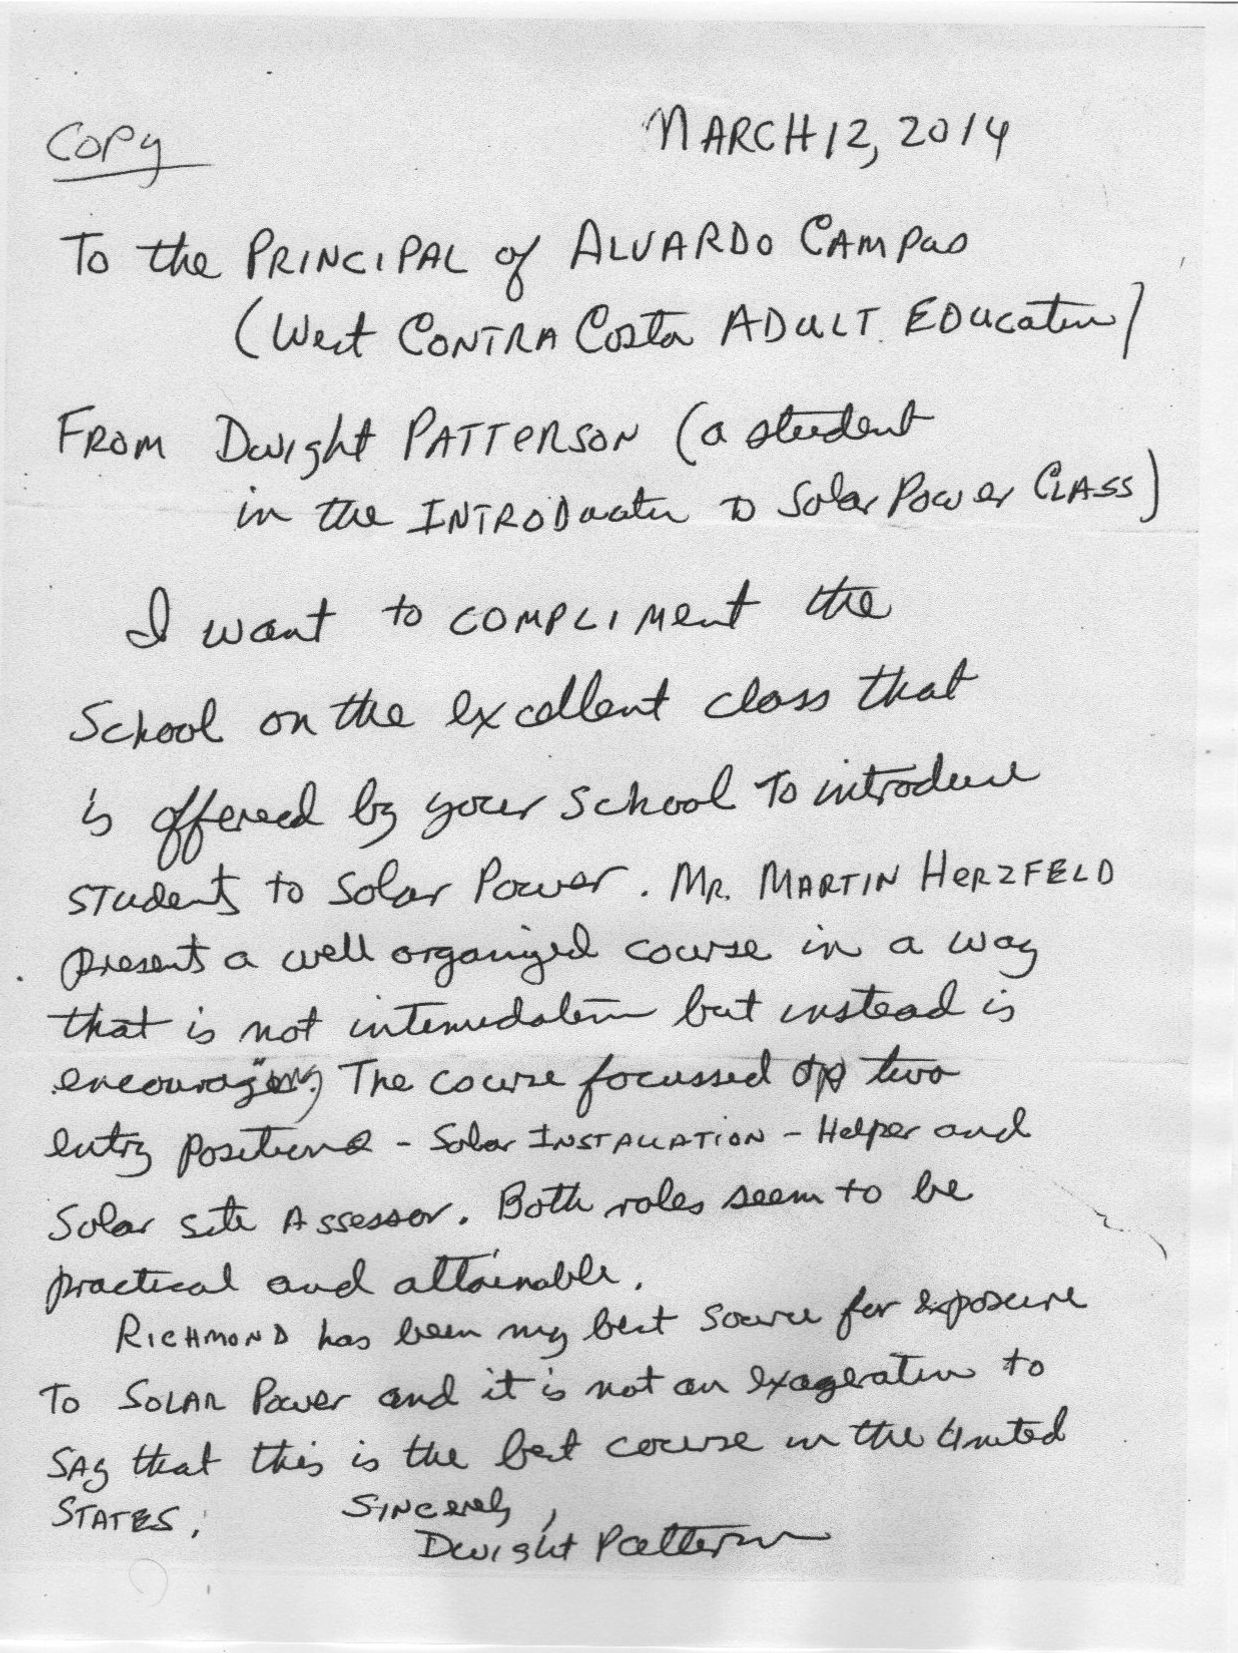 Copy
MARCH 12, 2014
To the PRINCIPAL of ALVARDO CAMPUS
(West CONTRA Costa ADULT EDUcation)
FROM Dwight PATTERSON (a student
in the INTRODucation to Solar Power CLASS)
I want to COMPLIMENT the
School on the excellent class that
is offered by your School To introduce
students to Solar Power. MR. MARTIN HERZFELD
presents a well organized course in a way
that is not but instead is
encouraging. The course focussed on two
entry positions - Solar INSTALLATION - Helper and
Solar site Assessor. Both roles seem to be
practical and attainable.
RICHMOND has been my best source for exposure
TO SOLAR Power and it is not an exageration to
SAy that this is the best course in the United
STATES.
SINCerely,
Dwight Patterson